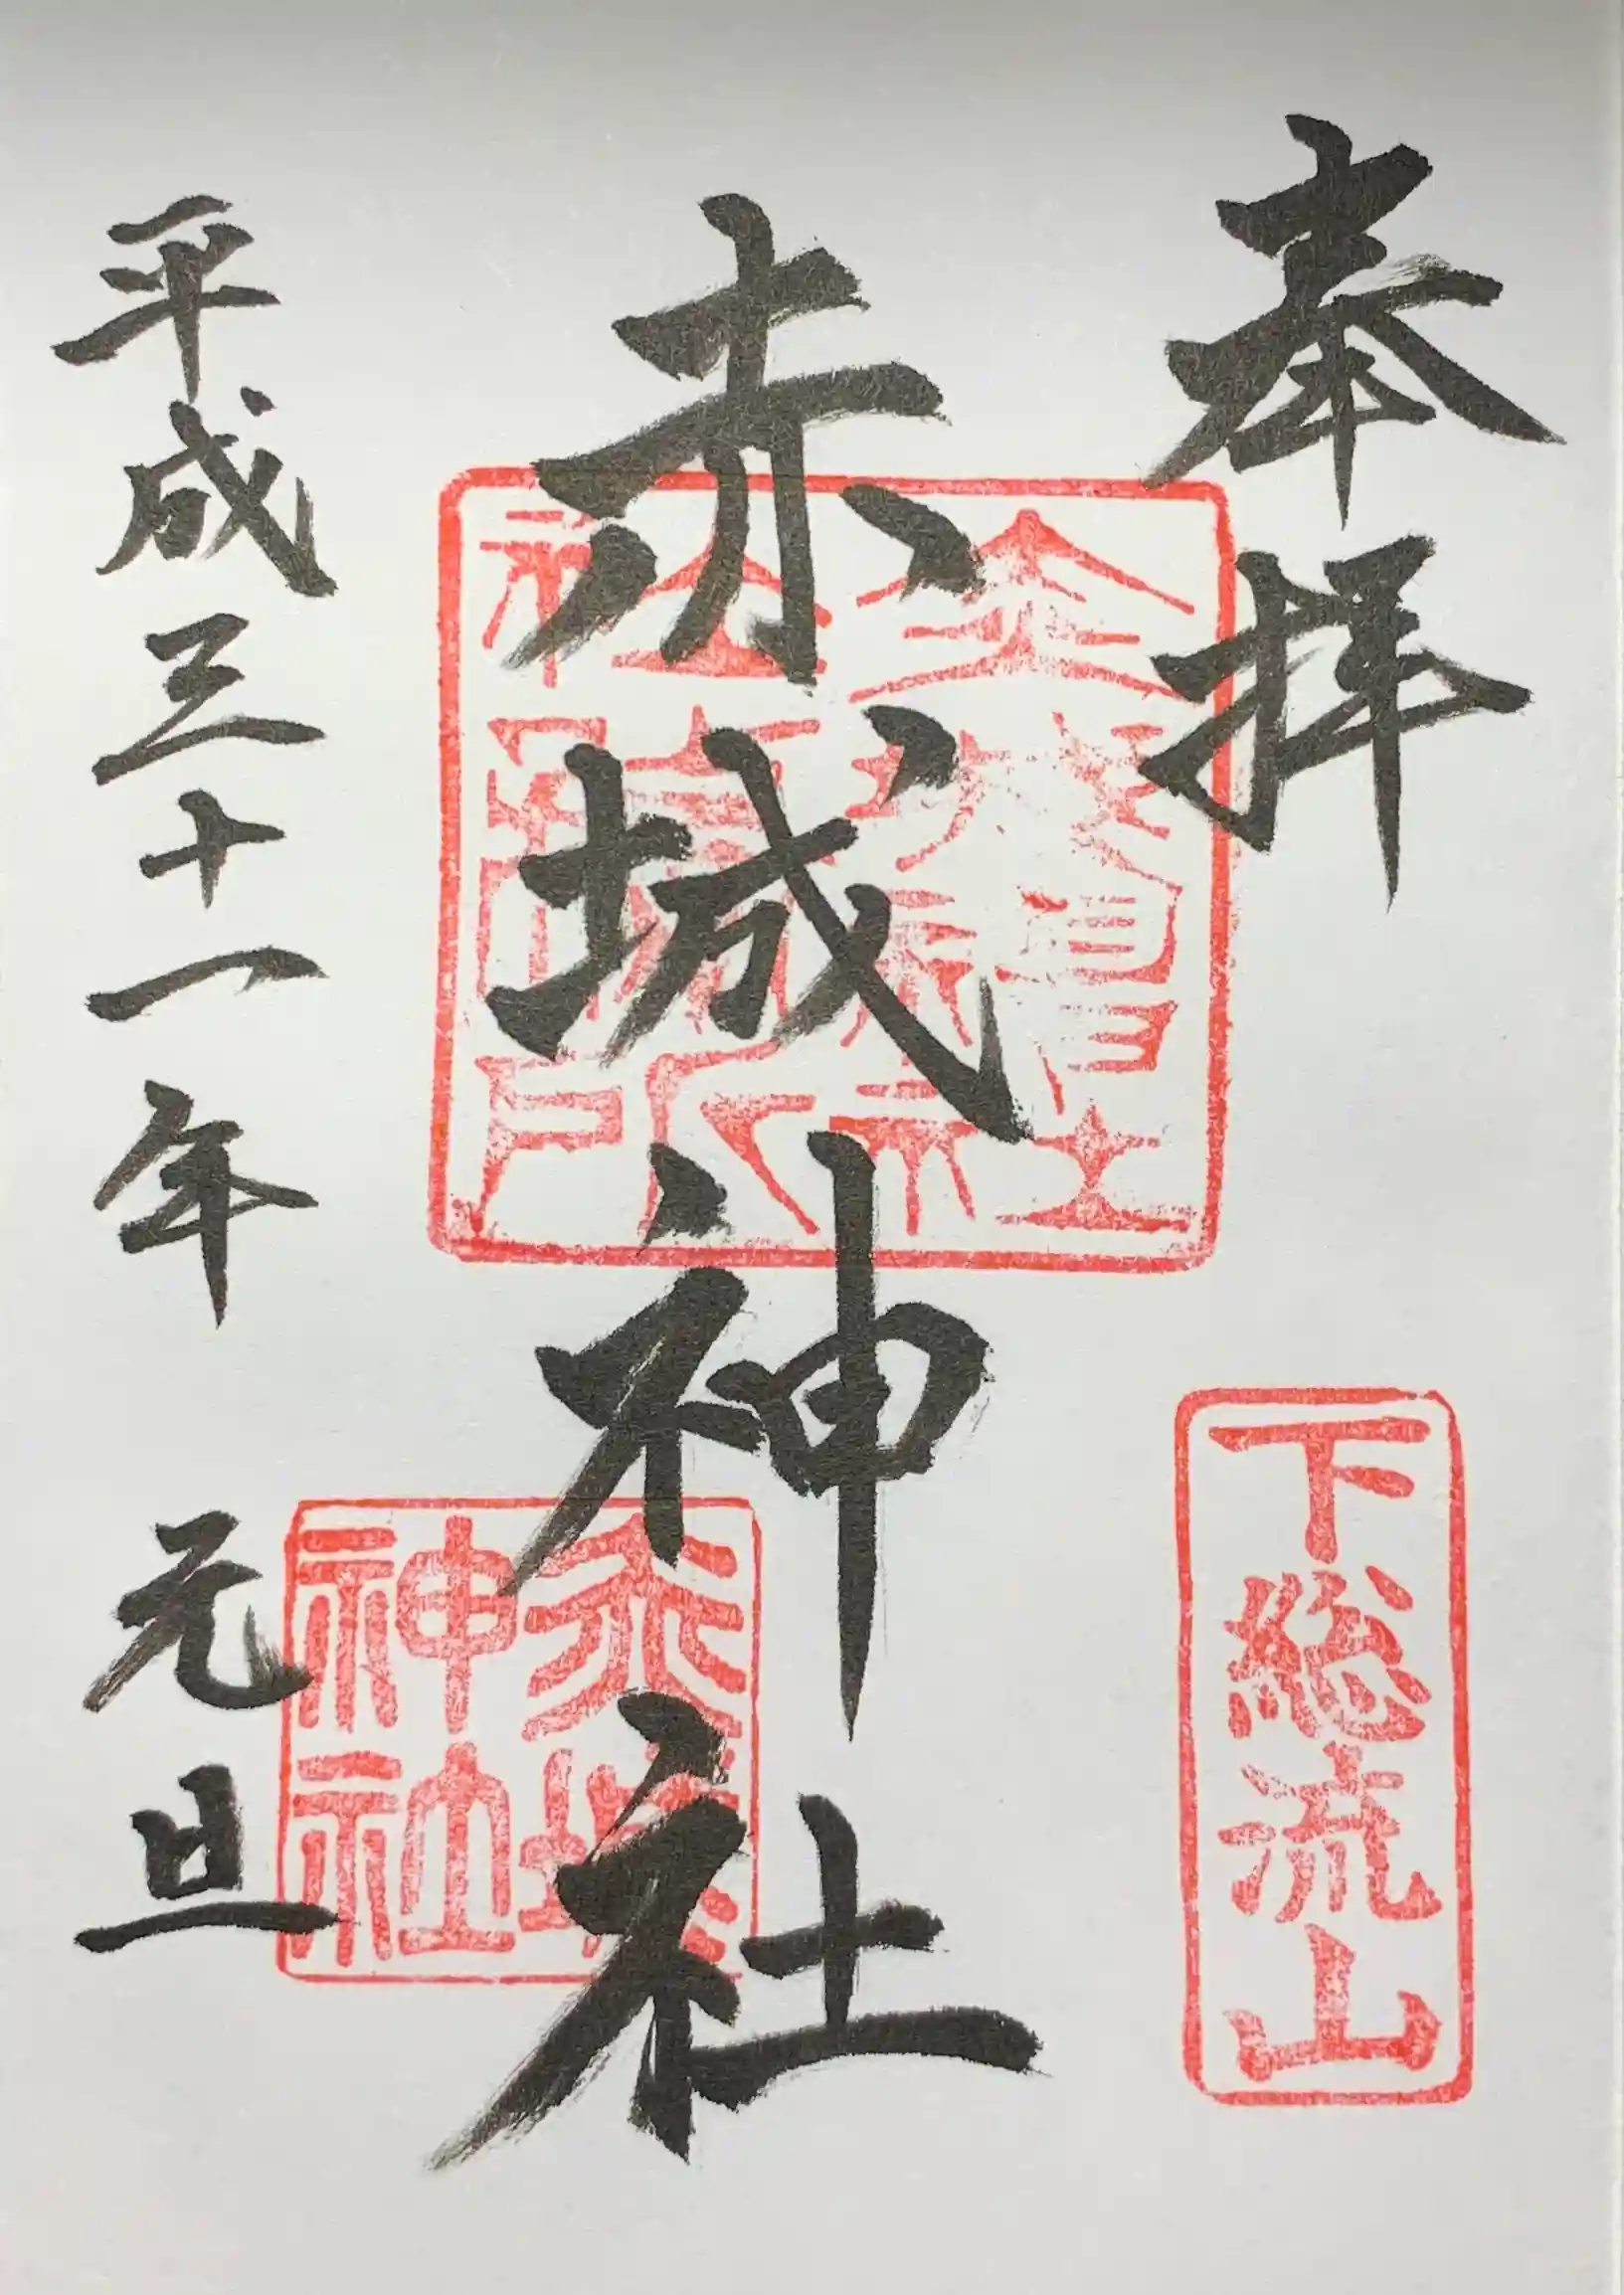 奉拝
下総流山
赤城神社
赤城神社
平成三十一年 元旦